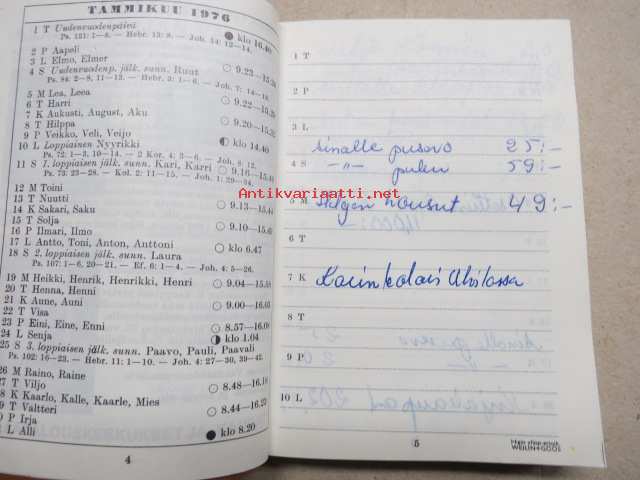 TAMMIKUU 1976
1 T Uudenvuodenpäivä klo 16.40
Ps. 121: 1—8. — Hebr. 13: 8. — Joh. 14: 12—14.
2 P Aapeli
3 L Elmo, Elmer 9.23—15.
4 S Uudenvuodenp. jälk. sunn. Ruut
Ps. 84: 2—8, 11—13. — Hebr. 3: 1—6. — Joh. 7: 14—18.
5 M Lea, Leea
6 T Harri 9.22—15.
7 K Aukusti, August, Aku
8 T Hilppa 9.20—15.
9 P Veikko, Veli, Veijo
10 L Loppiainen Nyyrikki klo 14.40
Ps. 72: 1—3, 10—14. — 2 Kor. 4: 3—6. — Joh. 8: 12.
11 S 1. loppiaisen jälk. sunn. Kari, Karri 9.16—15.
Ps. 73: 23—28. — Kol. 2: 11—15. — Joh. 1: 29—34.
12 M Toini
13 T Nuutti 9.13—15.
14 K Sakari, Saku
15 T Solja
16 P Ilmari, Ilmo 9.10—15.
17 L Antto, Toni, Anton, Anttoni klo 6.47
18 S 2. loppiaisen jälk. sunn. Laura
Ps. 107: 1—6, 20—21. — Ef. 6: 1—4. — Joh. 4: 5—26.
19 M Heikki, Henrik, Henrikki, Henri 9.04—15.
20 T Henna, Henni
21 K Aune, Auni 9.00—
22 T Visa
23 P Eini, Eine, Enni 8.57—16.0
24 L Senja klo 1.04
25 S 3. loppiaisen jälk. sunn. Paavo, Pauli, Paavali
Ps. 102: 16—23. — Hebr. 11: 1—10. — Joh. 4: 27—30, 39—42.
26 M Raino, Raine
27 T Viljo 8.48—16.
28 K Kaarlo, Kalle, Kaarle, Mies
T Valtteri 8.44—16.2
P Irja
L Alli klo 8.20
4
1 T
2 P
3 L
ainalle pusero 25:-
4 S -"- 59:-
5 M Helgen housut 49:-
6 T
7 K
8 T
9 P
10 L
5
WEILIN+GÖÖS
Antikvariaatti.net